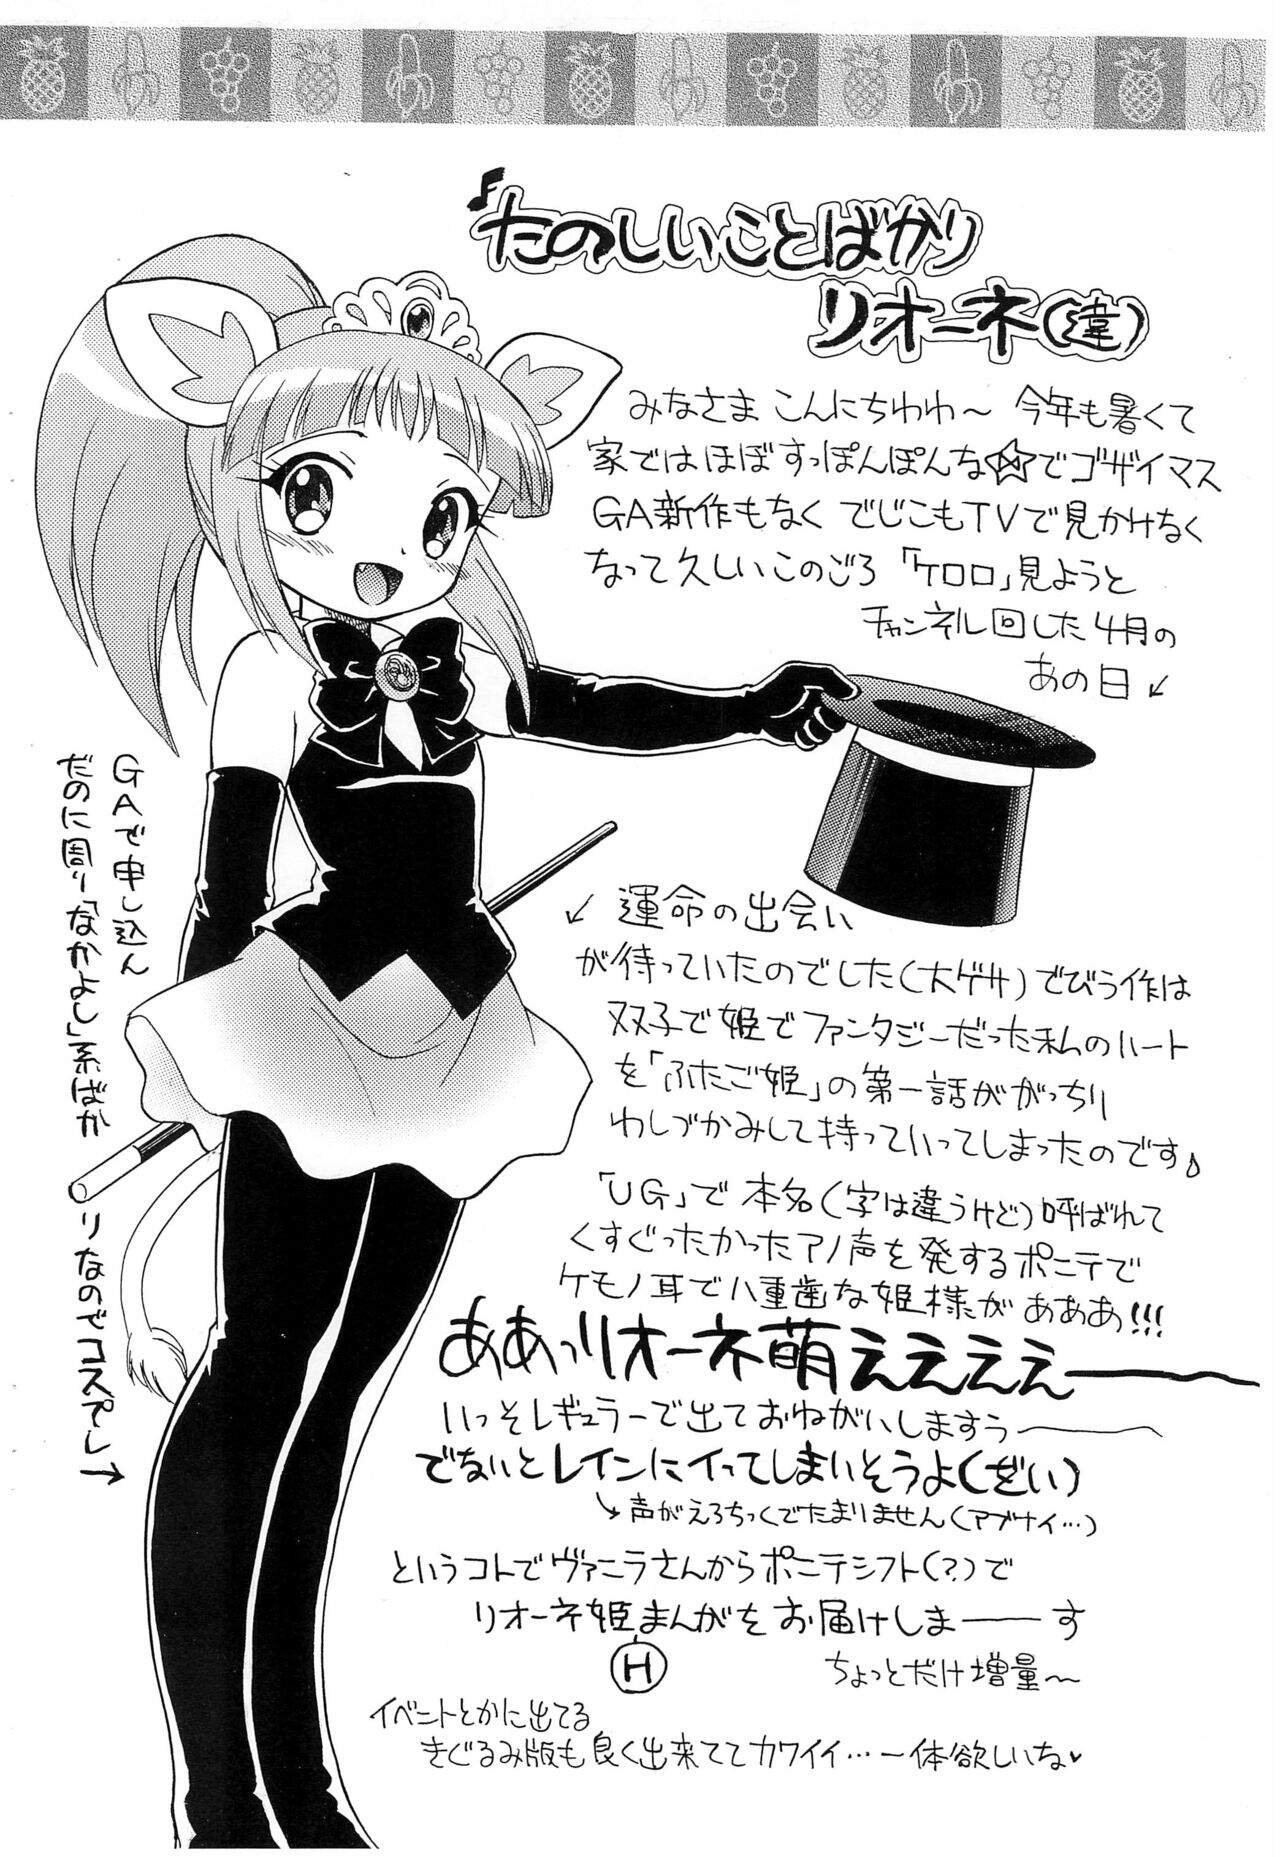 ♪たのしいことばかり
リオーネ(違)
みなさま こんにちわわ～ 今年も暑くて
家ではほぼすっぽんぽんな☆でゴザイマス
GA新作もなく でじこもTVで見かけなく
なって久しいこのごろ「ケロロ」見ようと
チャンネル回した4月の
あの日↙
← 運命の出会い
が待っていたのでした(大ゲサ)でびう作は
双子で姫でファンタジーだった私のハート
を「ふたご姫」の第一話ががっちり
わしづかみして持っていってしまったのです♪
「UG」で本名(字は違うけど)呼ばれて
くすぐったかったアノ声を発するポニテで
ケモノ耳で八重歯な姫様がぁあぁ!!!
ああっリオーネ萌えええぇ――
いっそレギュラーで出ておねがいしますぅ――
でないとレインにイってしまいそうよ(ざい)
↘声がえろちっくでたまりません(アブナイ…)
というコトでヴァニラさんからポニテシフト(?)で
リオーネ姫まんがをお届けしま――す
H
ちょっとだけ増量～
イベントとかに出てる
きぐるみ版も良く出来ててカワイイ…一体欲しいな♥
GAで申し込ん
だのに周り「なかよし」系ばか
りなのでコスプレ→